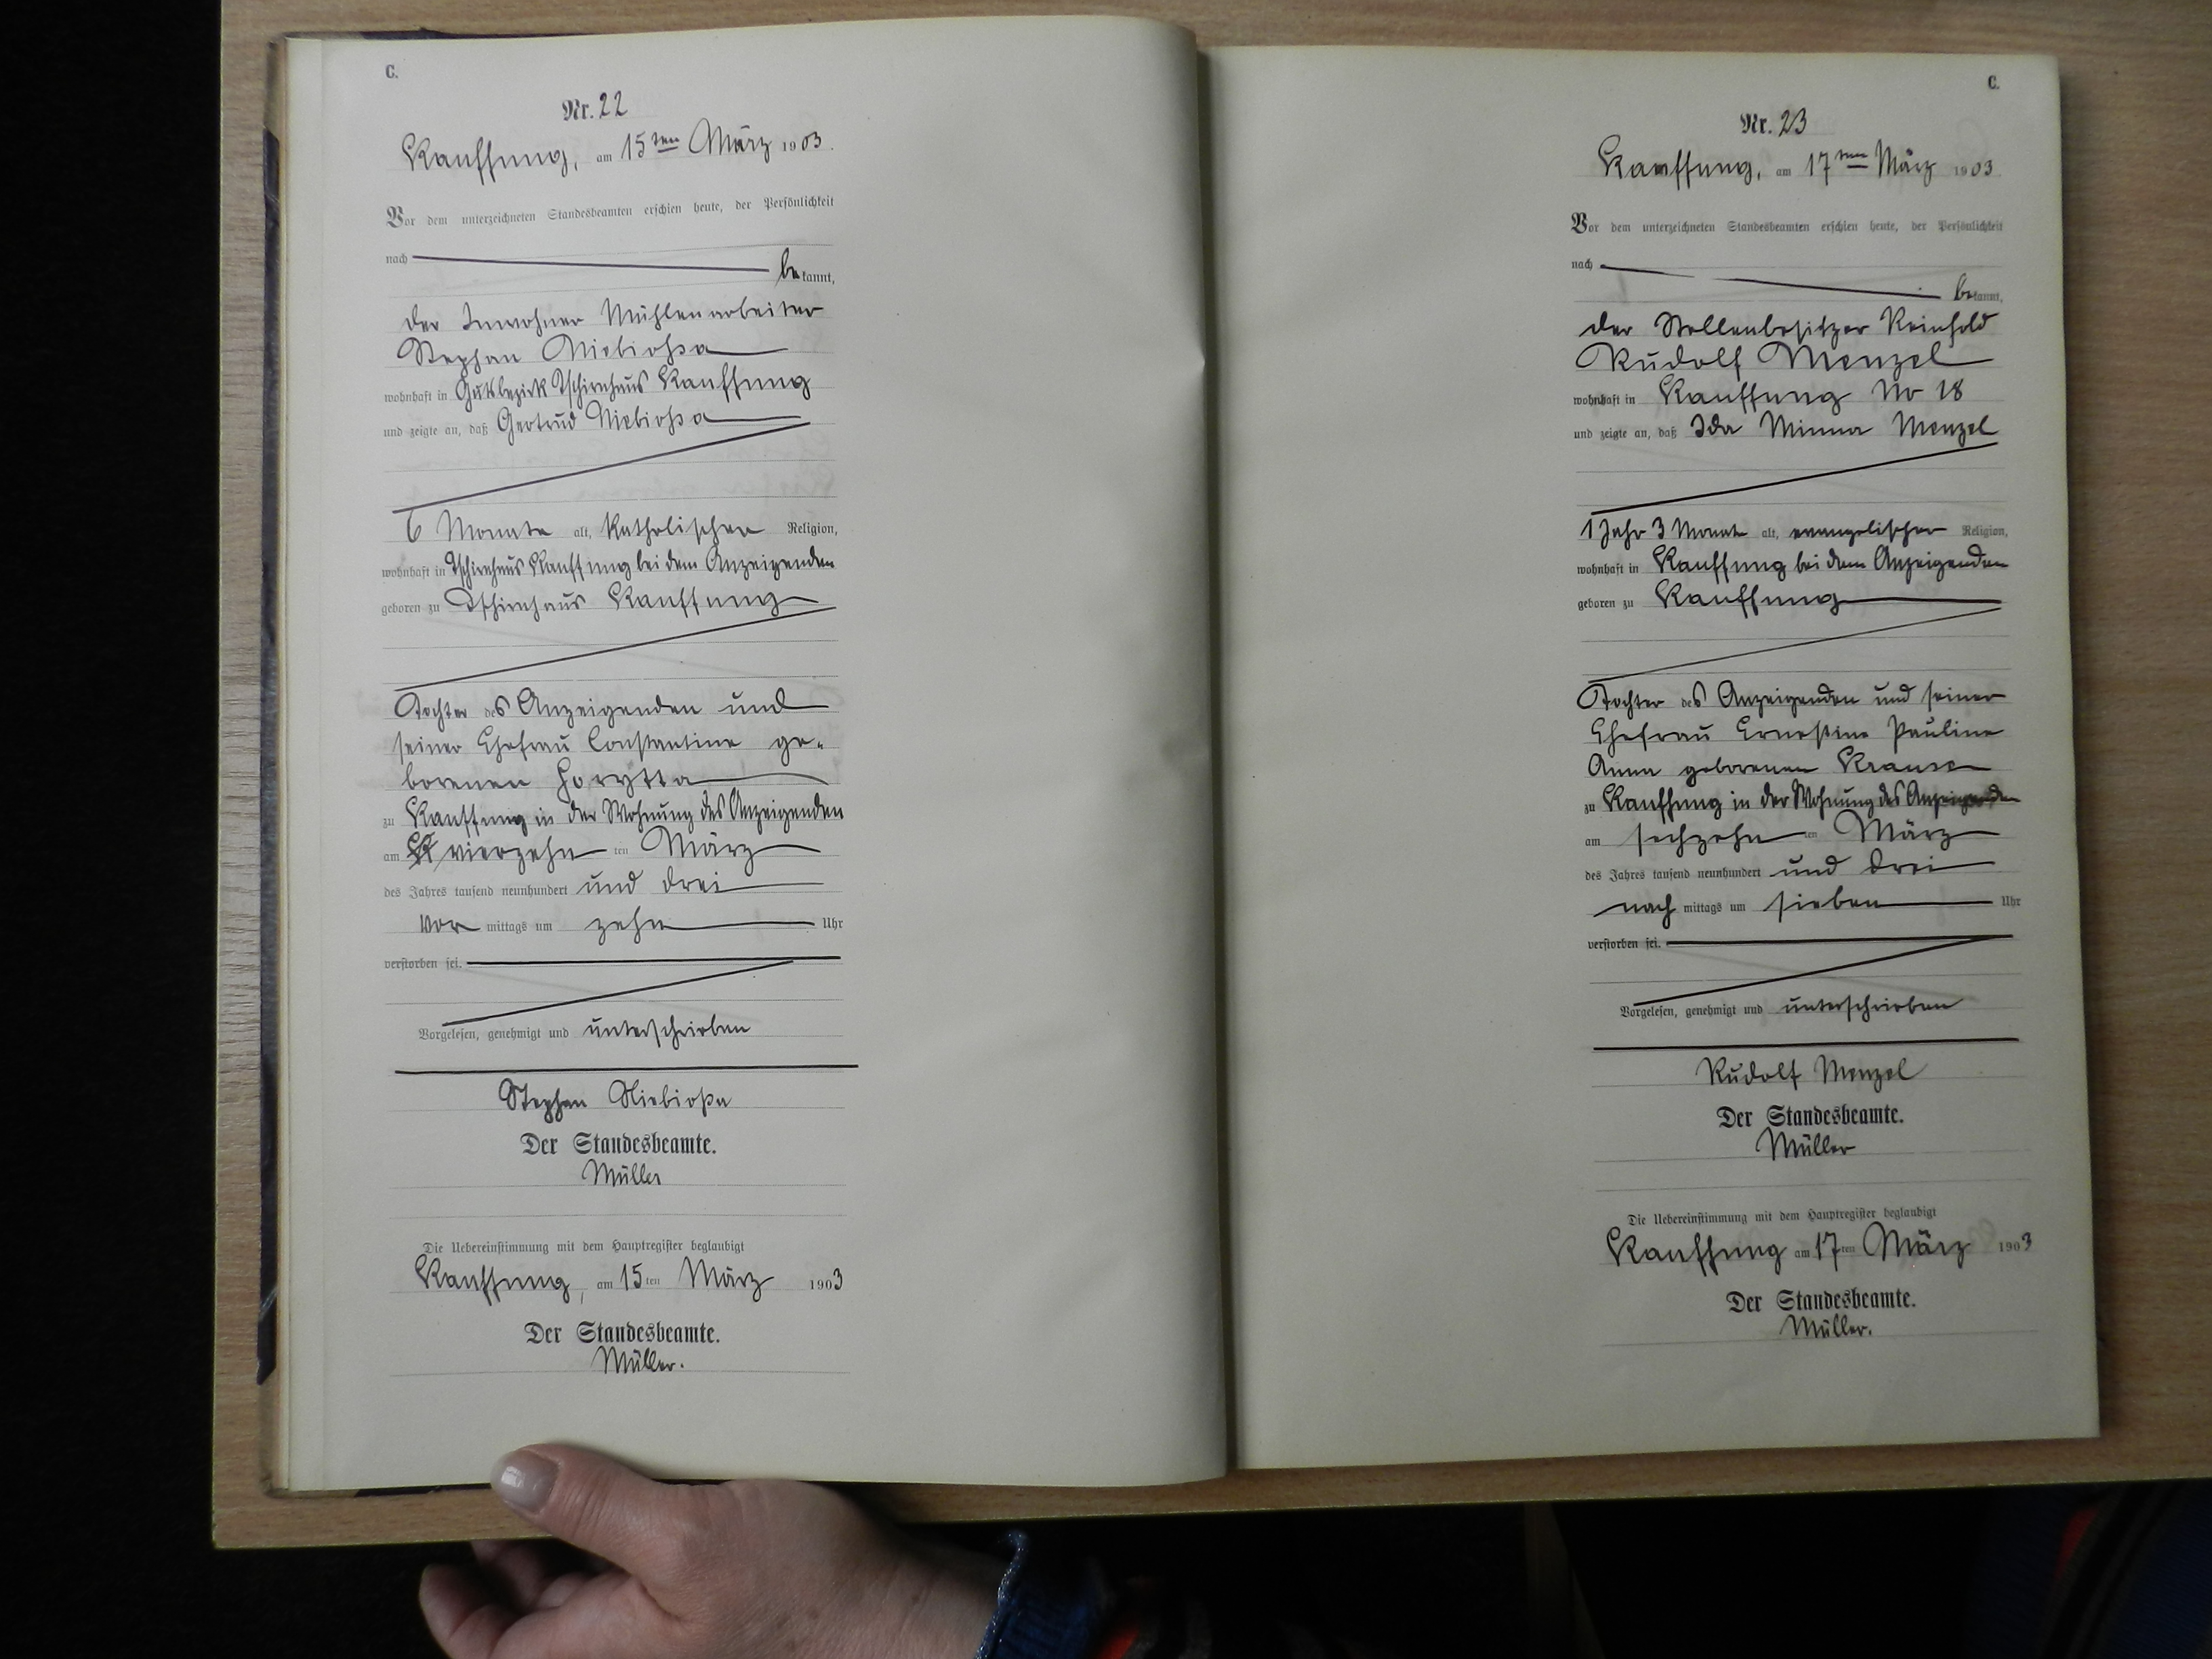 C.
Nr. 22
Kauffung, am 15ten März 1903.
Vor dem unterzeichneten Standesbeamten erschien heute, der Persönlichkeit
nach
bekannt,
der Inwohner Mühlenarbeiter
Stephan
wohnhaft in Gutsbezirk Tschirnhaus Kauffung
und zeigte an, daß Gertrud
6 Monate alt, katholischer Religion,
wohnhaft in Tschirnhaus Kauffung bei dem Anzeigenden
geboren zu Tschirnhaus Kauffung
Tochter des Anzeigenden und
seiner Ehefrau Constantine ge-
borenen
zu Kauffung in der Wohnung des Anzeigenden
am vierzehn ten März
des Jahres tausend neunhundert und drei
Vor mittags um zehn Uhr
verstorben sei.
Vorgelesen, genehmigt und unterschrieben
Stephan
Der Standesbeamte.
Müller
Die Uebereinstimmung mit dem Hauptregister beglaubigt
Kauffung, am 15ten März 1903
Der Standesbeamte.
Müller.
C.
Nr. 23
Kauffung, am 17ten März 1903
Vor dem unterzeichneten Standesbeamten erschien heute, der Persönlichkeit
nach
bekannt,
der Stellenbesitzer Reinhold
Rudolf Menzel
wohnhaft in Kauffung No 18
und zeigte an, daß Ida Minna Menzel
1 Jahr 3 Monate alt, evangelischer Religion,
wohnhaft in Kauffung bei dem Anzeigenden
geboren zu Kauffung
Tochter des Anzeigenden und seiner
Ehefrau Ernestine Pauline
Anna geborenen Krause
zu Kauffung in der Wohnung des Anzeigenden
am sechzehn ten März
des Jahres tausend neunhundert und drei
nach mittags um sieben Uhr
verstorben sei.
Vorgelesen, genehmigt und unterschrieben
Rudolf Menzel
Der Standesbeamte.
Müller
Die Uebereinstimmung mit dem Hauptregister beglaubigt
Kauffung am 17ten März 1903
Der Standesbeamte.
Müller.